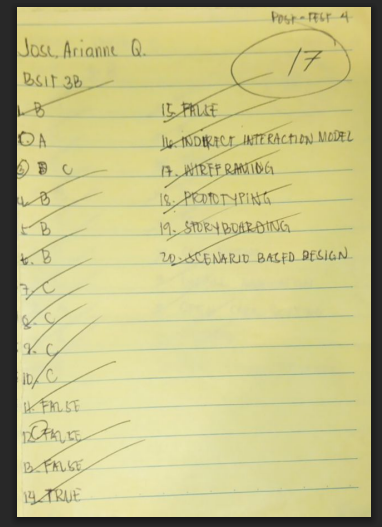 POST-TEST 4
Jose, Arianne Q.
17
BSIT 3B
1. B
2. A
3. C
4. B
5. B
6. B
7. C
8. C
9. C
10. C
11. FALSE
12. FALSE
13. FALSE
14. TRUE
15. FALSE
16. INDIRECT INTERACTION MODEL
17. WIREFRAMING
18. PROTOTYPING
19. STORYBOARDING
20. SCENARIO BASED DESIGN